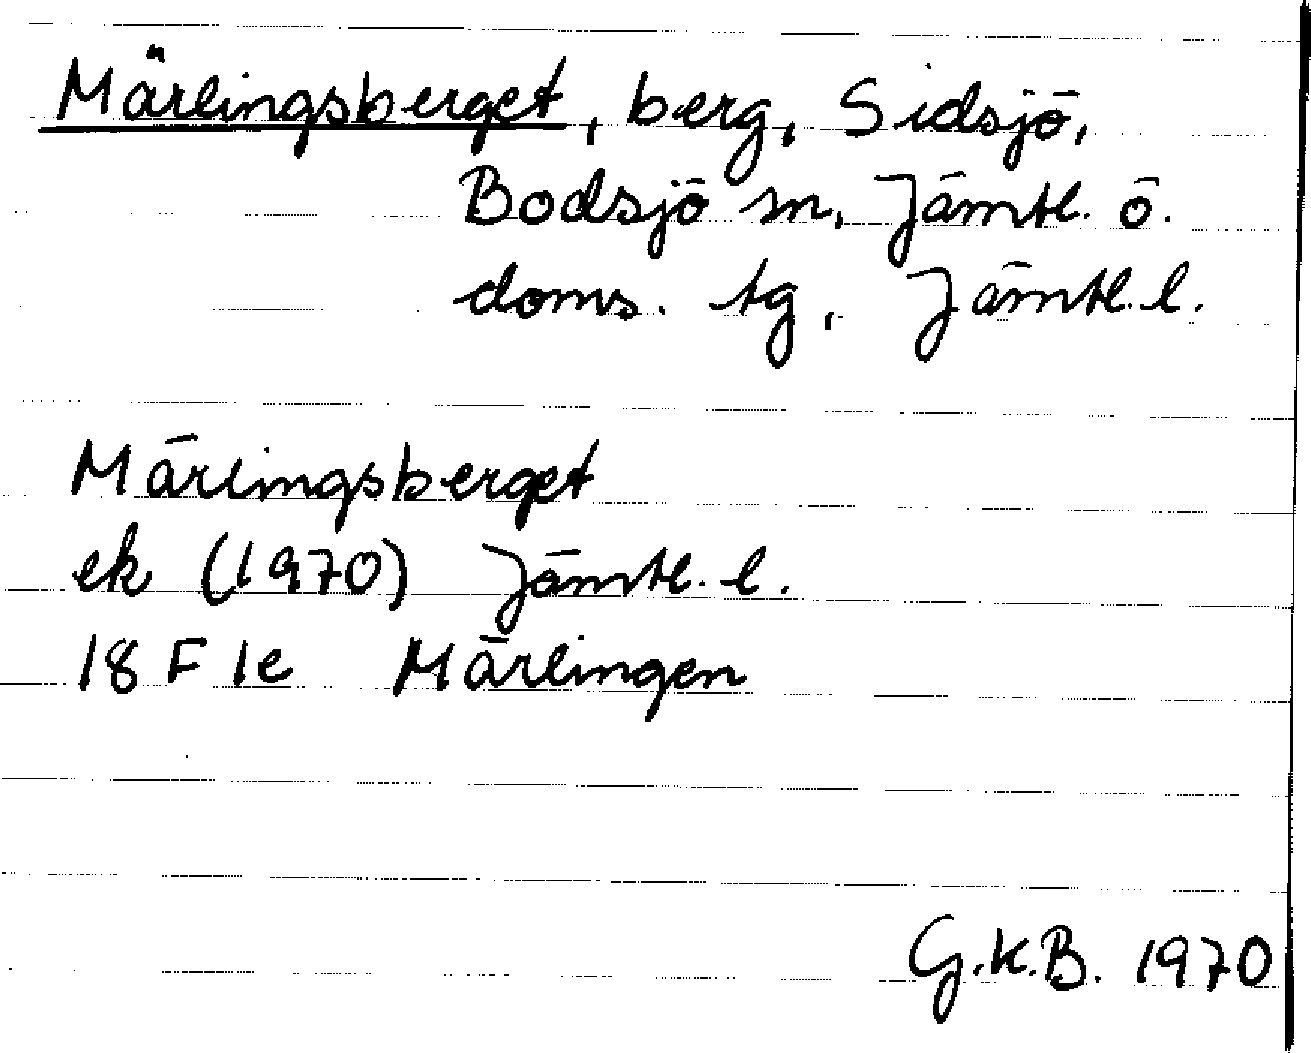 Märlingsberget, berg, Sidsjö,
Bodsjö sn, Jämtl. ö.
doms. tg, Jämtl. l.
Märlingsberget
ek (1970) Jämtl. l.
18 F 1e Märlingen
G.K.B. 1970